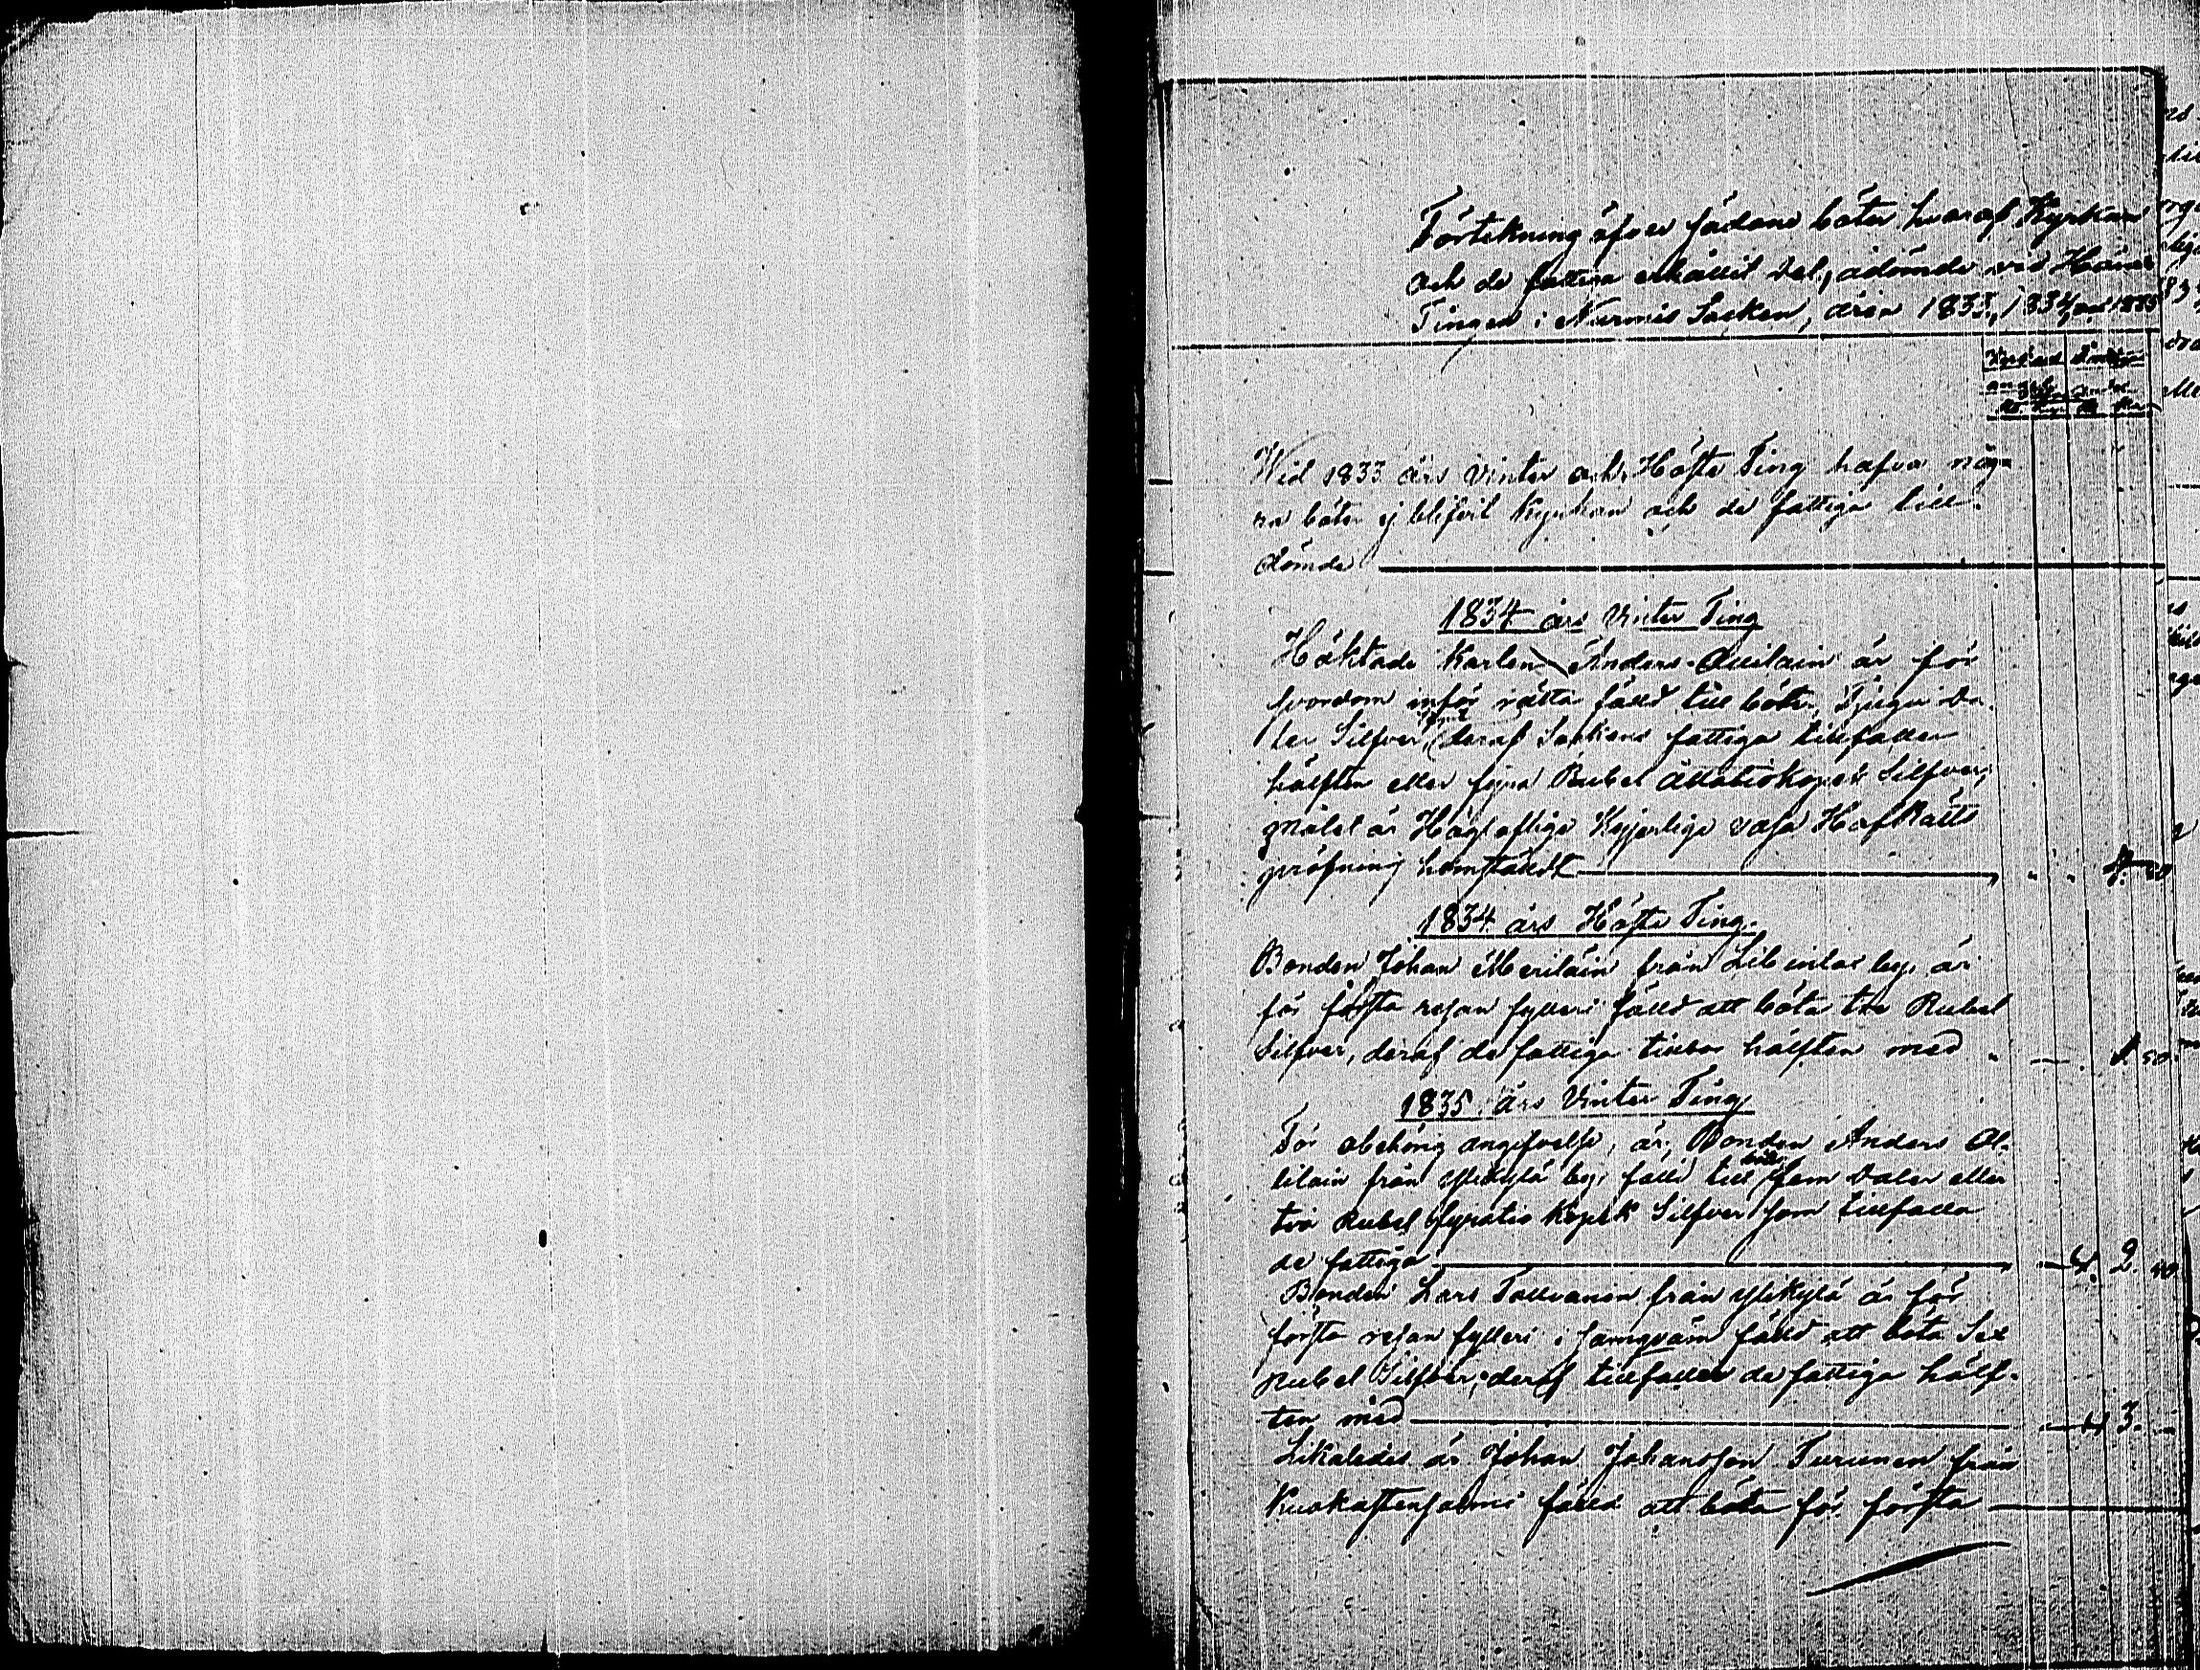 Förtekning öfver sådane böter hvaraf Kyrkan
och de fattiga erhållit del, ådömde vid Härads
Tingen i Nurmis Socken, åren 1833, 1834, och 1835
Kyrkans
andel
Wid 1833 års Vinter och Höste Ting hafva någ-
ra böter ej blifvit Kyrkan och de fattiga till-
dömde
1834 års Vinter Ting
Häktade Karlen Anders är för
svordom inför rätta fälld till böter, Tjugu Da-
ler Silfver mynt, deraf Sockens fattiga tillfaller
hälften eller fyra Rubel åttatio kopek Silfver;
målet är Högloflige Kejserlige Vasa HofRätts
pröfning hemstäldt
4. 80
1834 års Höste Ting.
Bonden Johan Meriläin från by, är
för första resan fylleri fälld att böta tre Rubel
Silfver, deraf de fattiga tillkom hälften med
1. 50.
1835 års Vinter Ting
För obehörig angifvelse, är, Bonden Anders Ol-
likain från Ylikylä by, fälld till böter fem Daler eller
två Rubel fyratio Kopek Silfver som tillfalla
de fattiga
2. 40
Bonden Lars Tolvanen från Ylikylä är för
första resan fylleri i fälld att böta Sex
Rubel Silfver; deraf tillfaller de fattiga hälf-
ten med
3. —
Likaledes är Johan Johansson Turunen från
Kuokastenjärvi fälld att böta för första